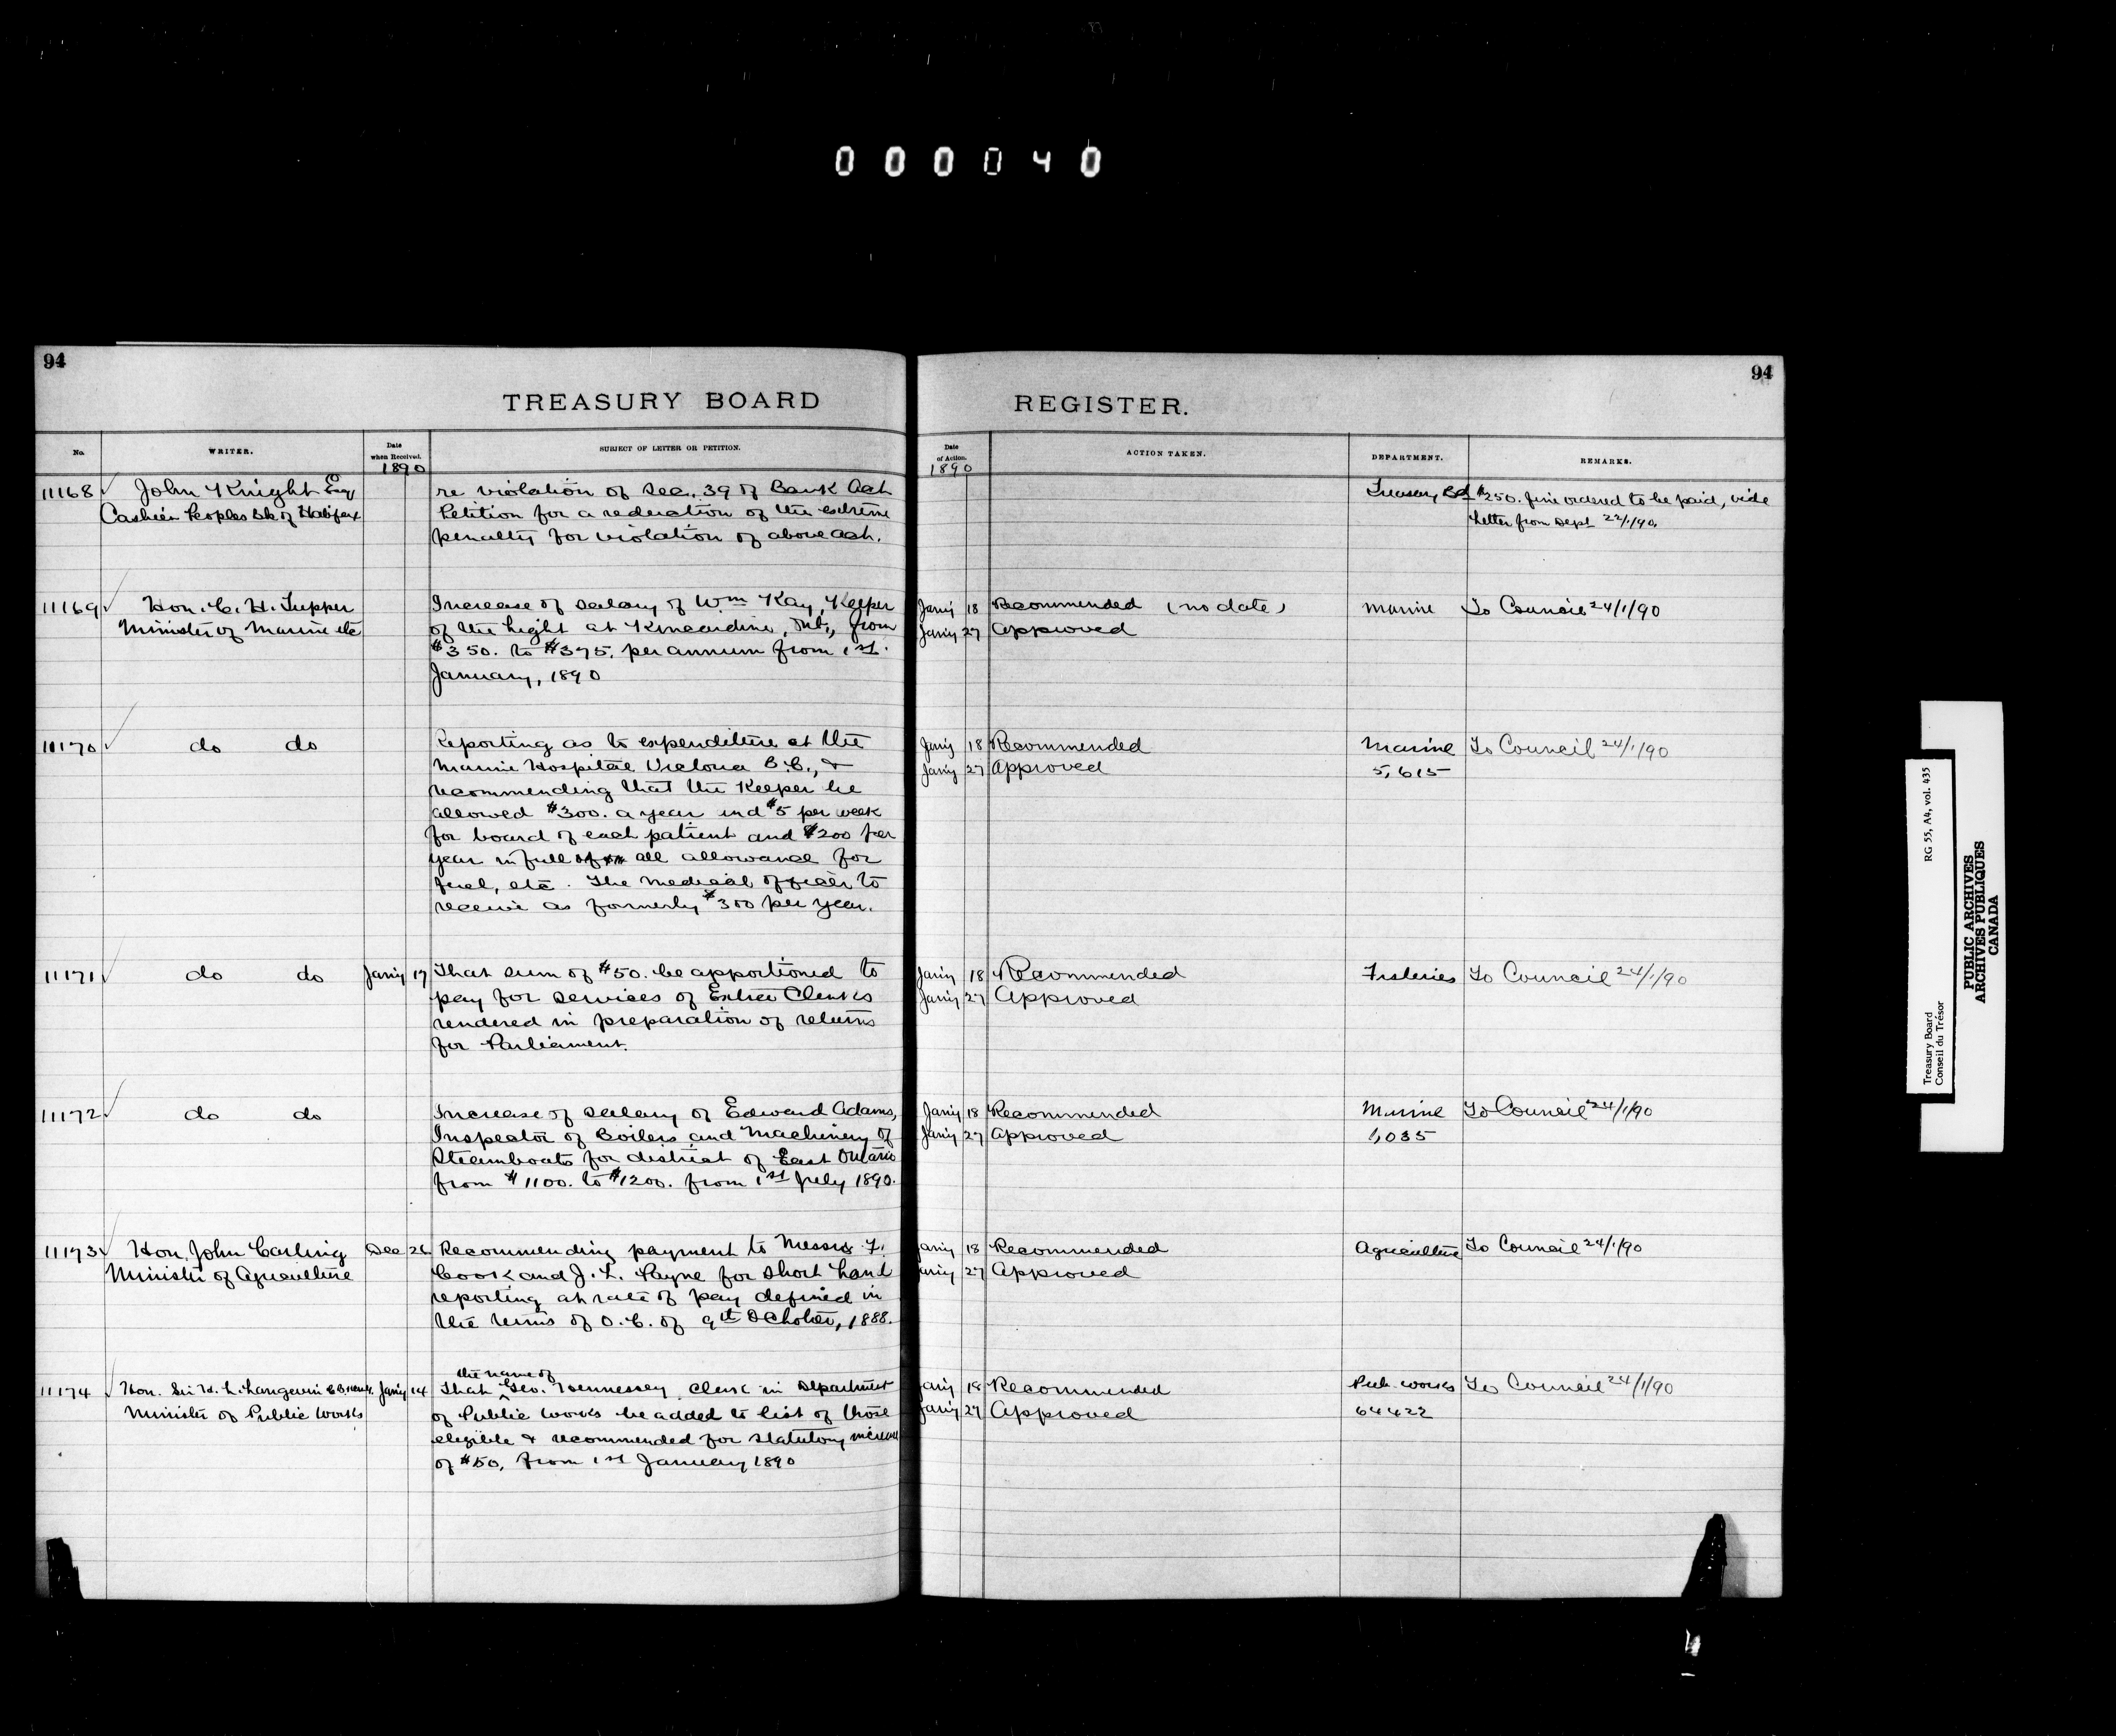 000040
94
94
TREASURY BOARD REGISTER.
No. WRITER. Date when Received. SUBJECT OF LETTER OR PETITION. Date of Action. ACTION TAKEN. DEPARTMENT. REMARKS.
1890 1890
11168 John Knight Esq re violation of Sec. 39 of Bank Act Treasury Bd $250. fine ordered to be paid, vide
Cashier Peoples Bk of Halifax Petition for a reduction of the extreme Letter from Dept 22/1/90.
penalty for violation of above act.
11169 Hon. C. H. Tupper Increase of salary of Wm Kay, Keeper Jany 18 Recommended (no date) Marine To Council 24/1/90
Minister of Marine etc of the Light at Kincardine, Ont, from Jany 27 Approved
$350. to $375. per annum from 1st.
January, 1890
11170 do do Reporting as to expenditure at the Jany 18 Recommended Marine To Council 24/1/90
Marine Hospital Victoria B.C., & Jany 27 Approved 5,615
recommending that the Keeper be
allowed $300. a year and $5 per week
for board of each patient and $200 per
year in full of all allowance for
fuel, etc. The Medical officer to
receive as formerly $300 per year.
11171 do do Jany 17 That sum of $50. be apportioned to Jany 18 Recommended Fisheries To Council 24/1/90
pay for services of Extra Clerks Jany 27 Approved
rendered in preparation of returns
for Parliament.
11172 do do Increase of salary of Edward Adams, Jany 18 Recommended Marine To Council 24/1/90
Inspector of Boilers and Machinery of Jany 27 Approved 1,035
Steamboats for district of East Ontario
from $1100. to $1200. from 1st July 1890.
11173 Hon. John Carling Dec 26 Recommending payment to Messrs F. Jany 18 Recommended Agriculture To Council 24/1/90
Minister of Agriculture Cook and J. L. Payne for short hand Jany 27 Approved
reporting at rate of pay defined in
the terms of O.C. of 9th October, 1888.
the name of
11174 Hon. Sir H. L. Langevin C.B. Jany 14 That Geo. Hennessey, Clerk in Department Jany 18 Recommended Pub. Works To Council 24/1/90
Minister of Public Works of Public Works be added to list of those Jany 27 Approved 64422
eligible & recommended for statutory increase
of $50, from 1st January 1890
RG 55, A4, vol. 435
Treasury Board
Conseil du Trésor
PUBLIC ARCHIVES
ARCHIVES PUBLIQUES
CANADA